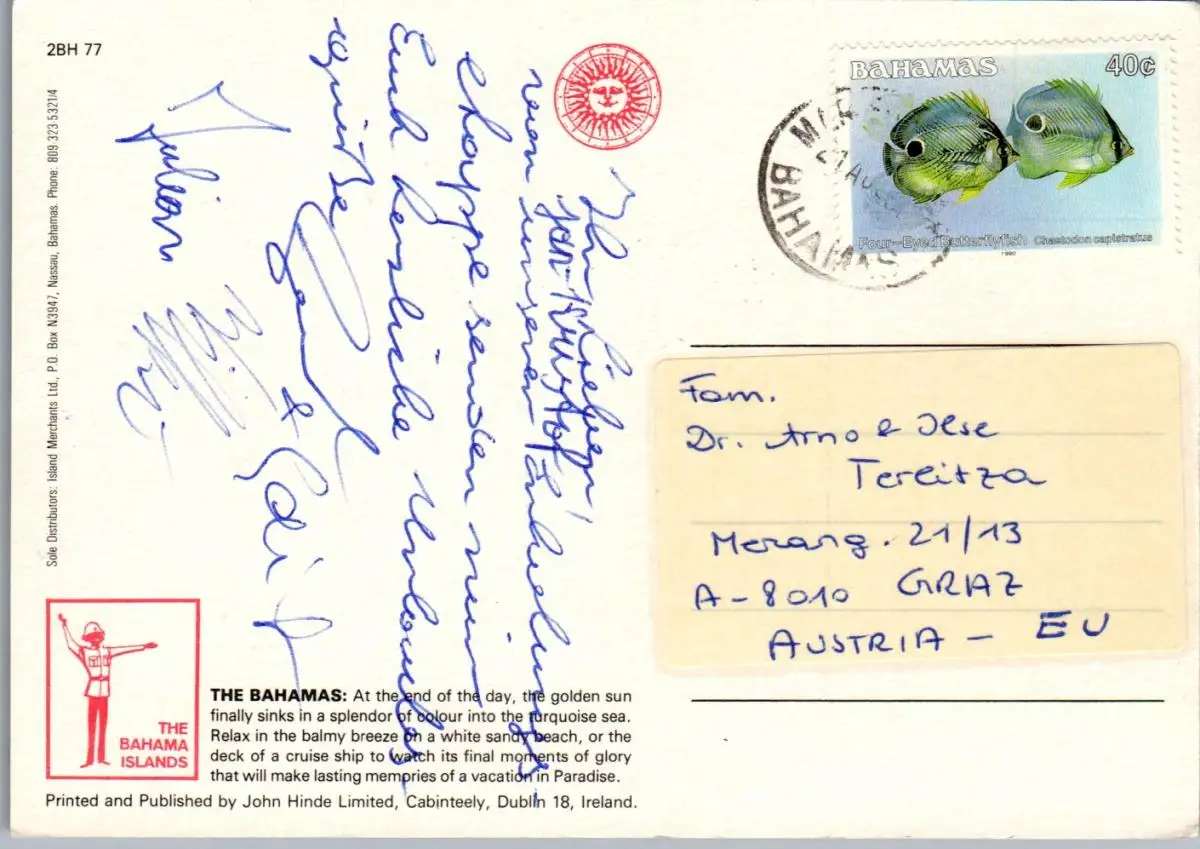 2BH 77
Sole Distributors: Island Merchants Ltd., P.O. Box N3947, Nassau, Bahamas. Phone: 809.323-5321/4
Ihr Lieben!
von unserer Erholungs-
etappe senden wir
Euch herzliche Urlaubs-
wünsche
& Edith
Julian
BAHAMAS 40¢
Four-Eyed Butterflyfish Chaetodon capistratus
1990
21 AUG
BAHAMAS
Fam.
Dr. Arno & Ilse
Terlitza
Merang. 21/13
A-8010 GRAZ
AUSTRIA - EU
THE
BAHAMA
ISLANDS
THE BAHAMAS: At the end of the day, the golden sun
finally sinks in a splendor of colour into the turquoise sea.
Relax in the balmy breeze on a white sandy beach, or the
deck of a cruise ship to watch its final moments of glory
that will make lasting memories of a vacation in Paradise.
Printed and Published by John Hinde Limited, Cabinteely, Dublin 18, Ireland.